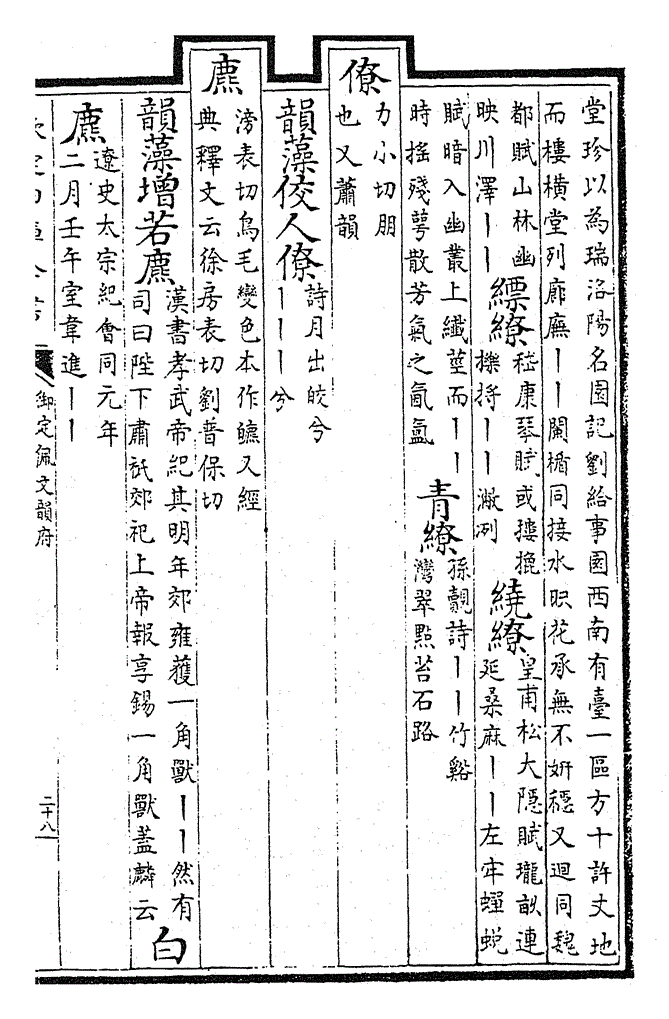 堂珍以為瑞洛陽名園記劉給事園西南有臺一區方十許丈地
而樓橫堂列廊廡丨丨闌楯同接水映花承無不妍穩又迴同魏
都賦山林幽
映川澤丨丨
縹繚
嵇康琴賦或摟㧙
擽捋丨丨潎冽
繞繚
皇甫松大隱賦瓏畝連
延桑麻丨丨左牢蟶蜕
賦暗入幽叢上纖莖而丨丨
時搖殘萼散芳氣之氤氳
青繚
孫覿詩丨丨竹谿
灣翠點苔石路
僚
力小切朋
也又蕭韻
韻藻佼人僚
詩月出皎兮
丨丨丨兮
麃
滂表切鳥毛變色本作皫又經
典釋文云徐房表切劉普保切
韻藻增若麃
漢書孝武帝紀其明年郊雍獲一角獸丨丨然有
司曰陛下肅祇郊祀上帝報享錫一角獸蓋麟云
白
麃
遼史太宗紀會同元年
二月壬午室韋進丨丨
御定佩文韻府
二十八